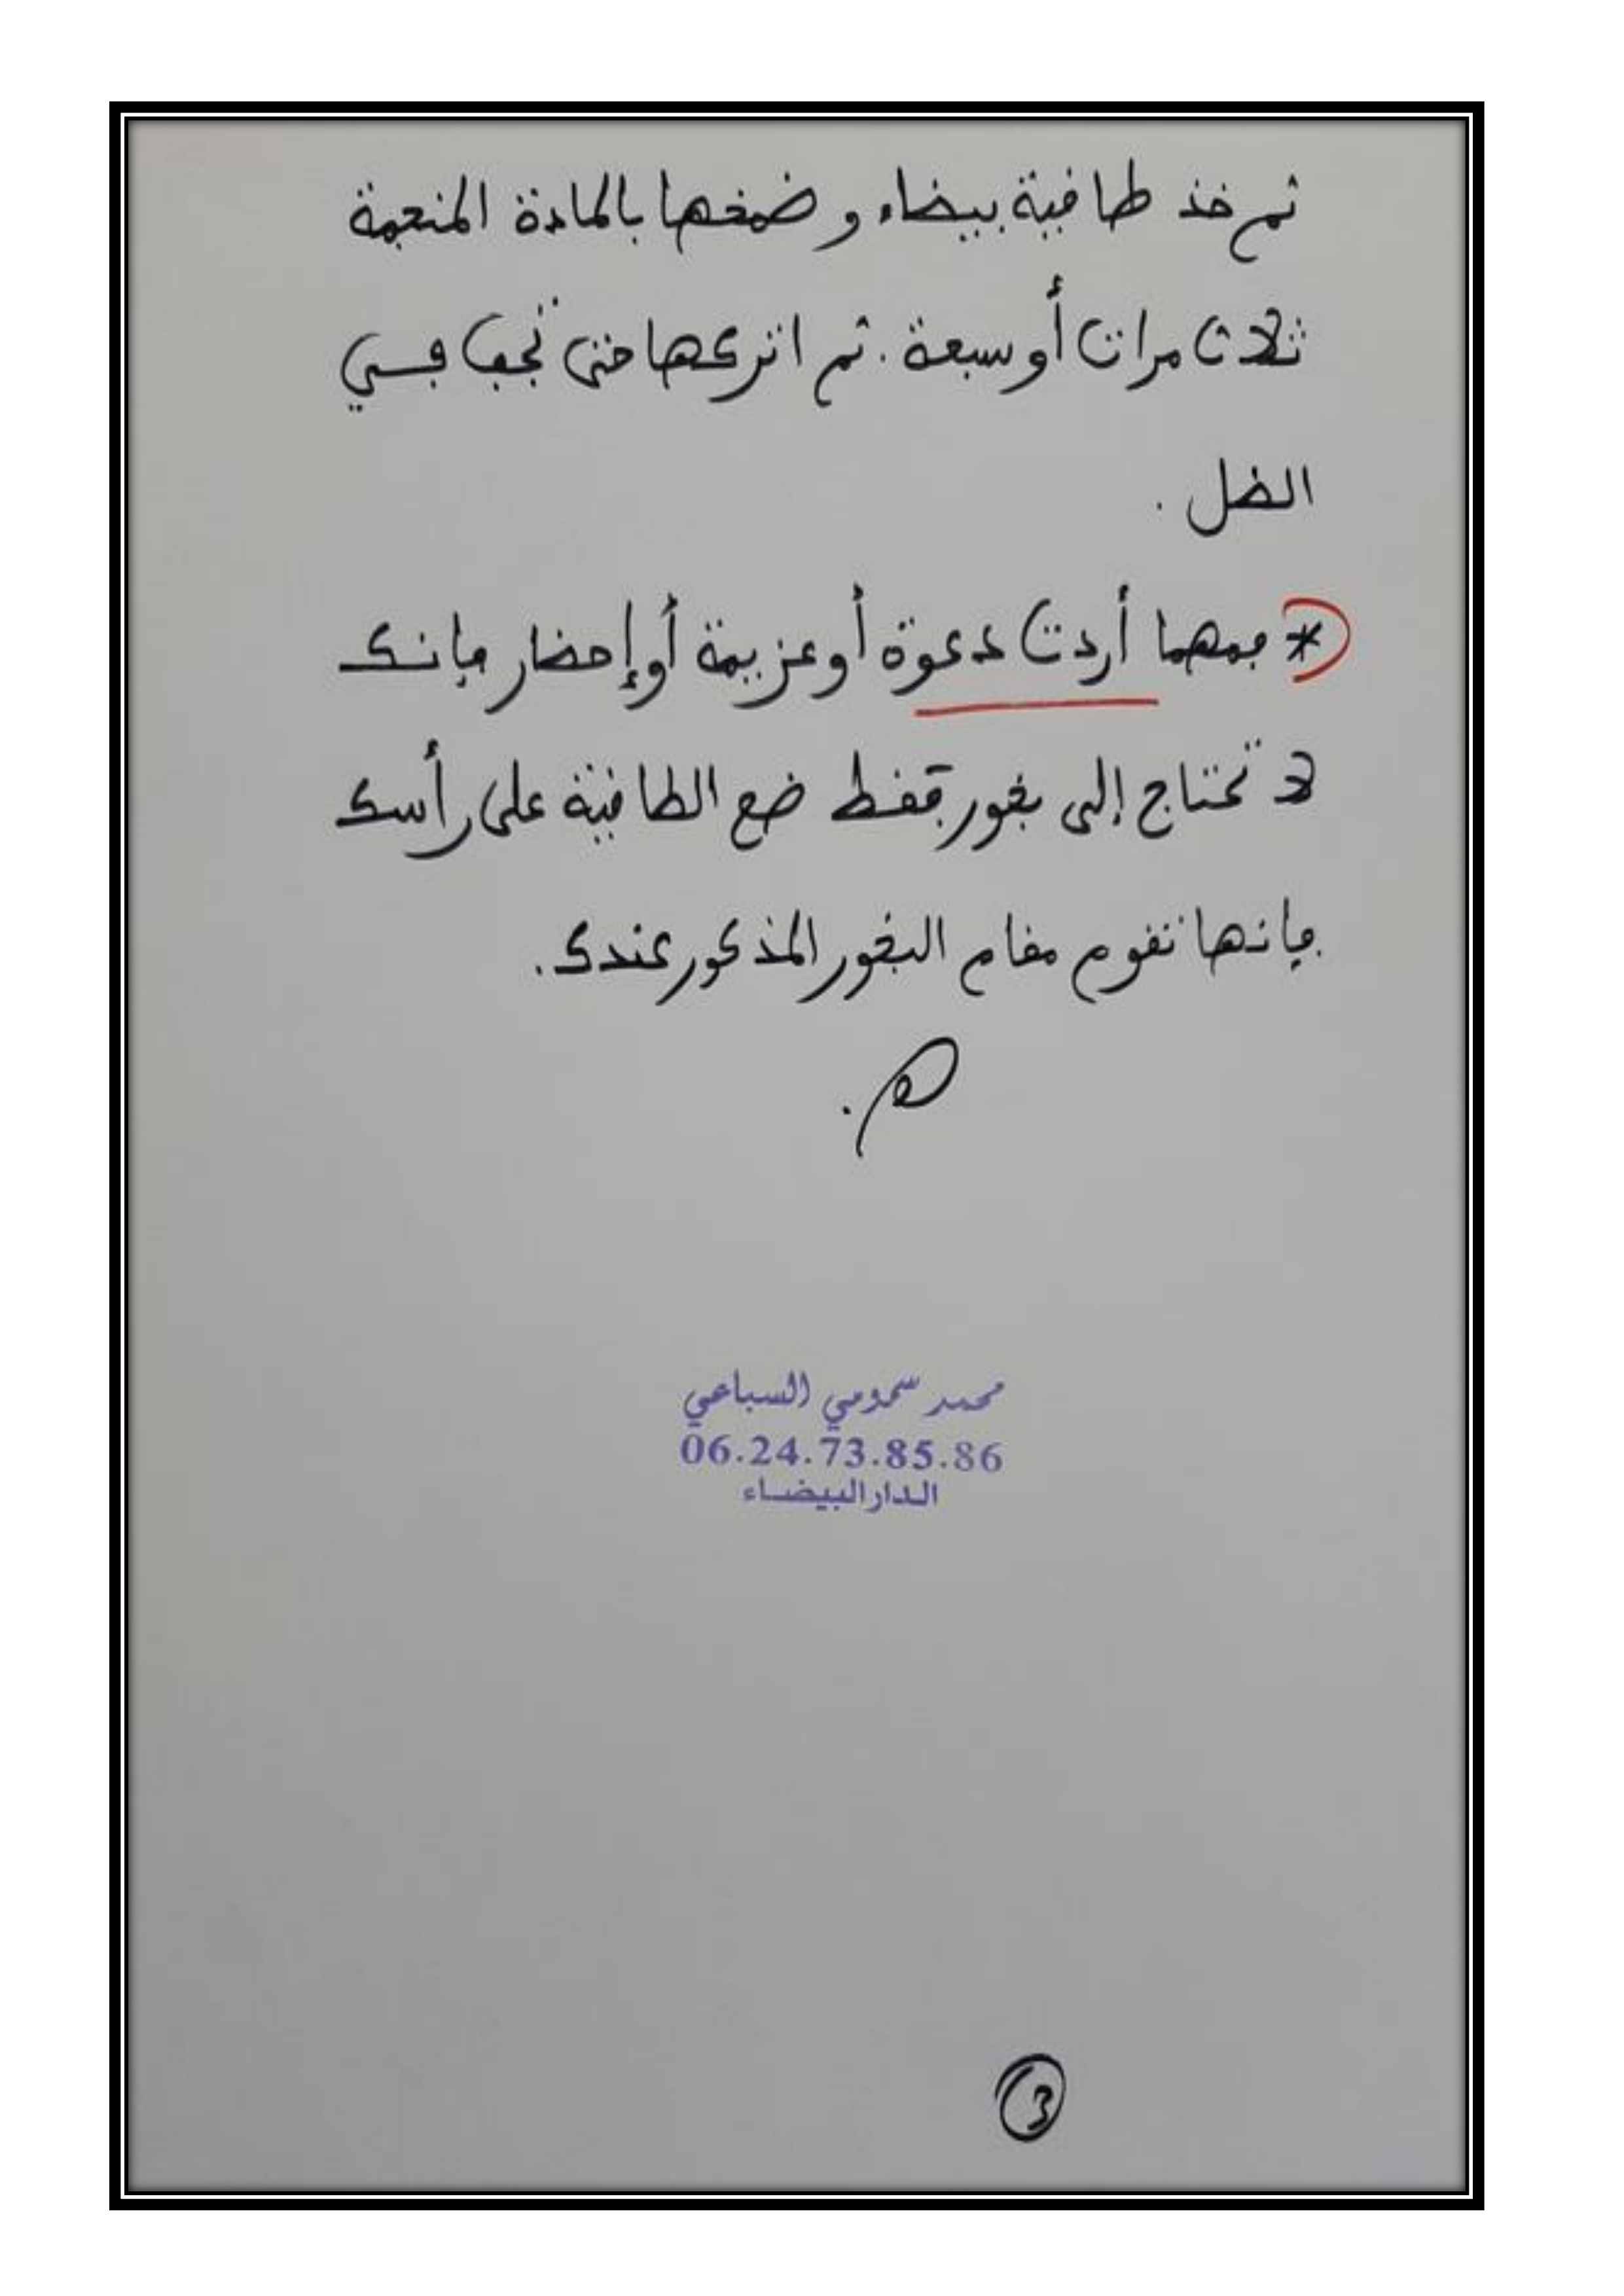 ثم خذ طاقية بيضاء و ضمخها بالمادة المنعمة
ثلاث مرات أو سبعة . ثم اتركها حتى تجف فــي
الضل .
* فمهما أردت دعوة أو عزيمة أو إحضار فإنك
لا تحتاج إلى بخور فقط ضع الطاقية على رأسك
فإنها تقوم مقام البخور المذكور عندك .
محمد سمومي السباعي
06.24.73.85.86
الدار البيضاء
3